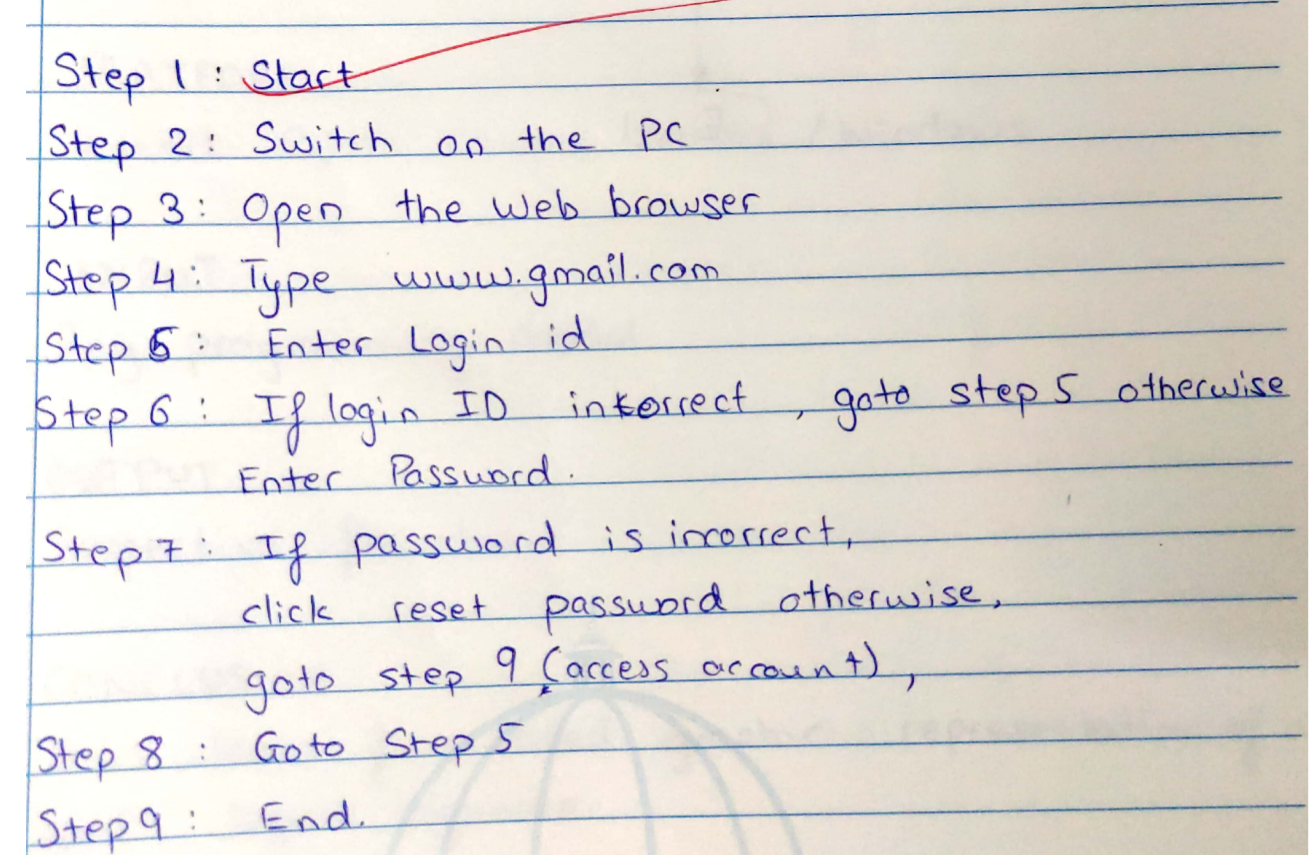 Step 1 : Start
Step 2 : Switch on the PC
Step 3 : Open the web browser
Step 4 : Type www.gmail.com
Step 5 : Enter Login id
Step 6 : If login ID incorrect , goto step 5 otherwise
Enter Password.
Step 7 : If password is incorrect,
click reset password otherwise,
goto step 9 (access account),
Step 8 : Goto Step 5
Step 9 : End.